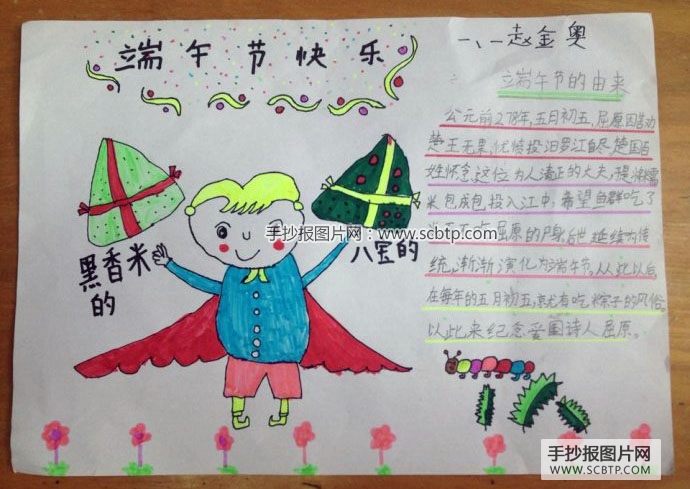 端午节快乐
一、一赵金奥
端午节的由来
公元前278年,五月初五,屈原因劝
楚王无果,忧愤投汨罗江自尽,楚国百
姓怀念这位为人清正的大夫,提将糯
米包成包投入江中,希望鱼群吃了
屈原的尸身,后世延续为传
统,渐渐演化为端午节。从此以后,
在每年的五月初五,就有吃粽子的风俗,
以此来纪念爱国诗人屈原。
黑香米
的
八宝的
手抄报图片网:www.scbtp.com
手抄报图片网
WWW.SCBTP.COM